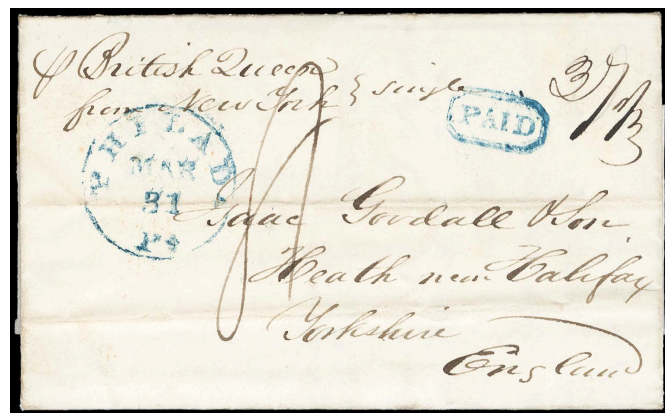 ⅌ British Queen
from New York } single
PAID
37½
PHILAD
MAR
31
Pa
8
Isaac Goodall & Son
Heath near Halifax
Yorkshire
England